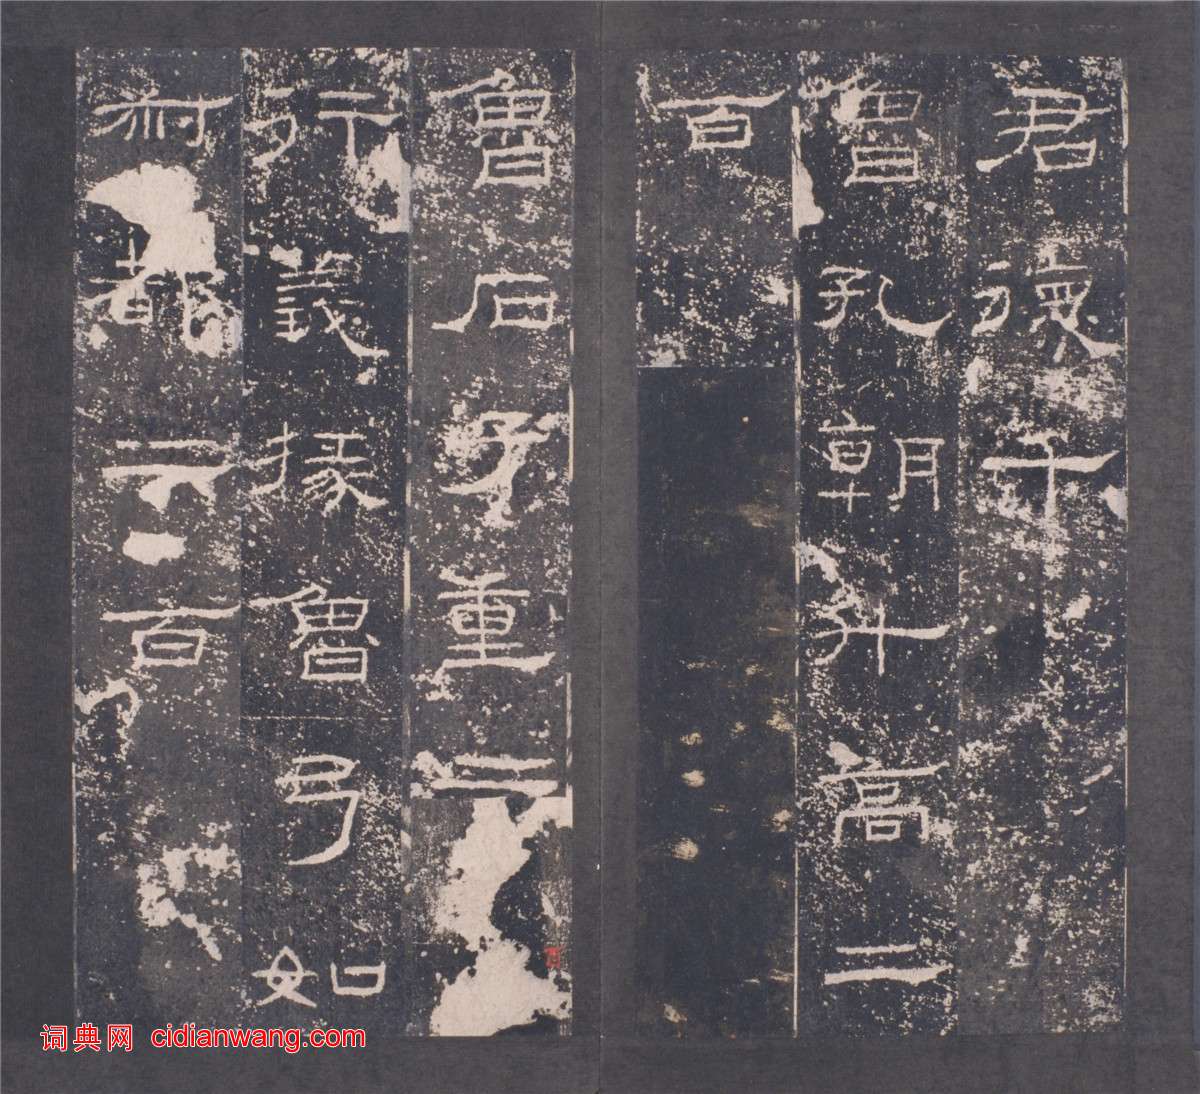 君德千
魯孔朝升高二
百
魯石子重二
行義掾魯弓如
叔都二百
词典网 cidianwang.com